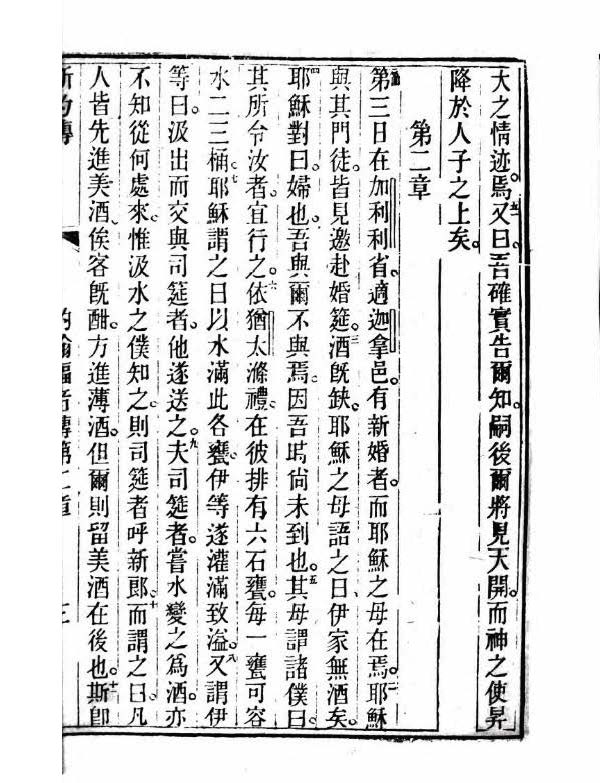 大之情迹焉。五十又曰。吾確實告爾知。嗣後爾將見天開。而神之使昇
降於人子之上矣。
第二章
第三日在加利利省。適迦拿邑。有新婚者。而耶穌之母在焉。二耶穌
與其門徒。皆見邀赴婚筵。三酒既缺。耶穌之母語之曰。伊家無酒矣。
四耶穌對曰。婦也。吾與爾不與焉。因吾時尚未到也。五其母謂諸僕曰。
其所令汝者。宜行之。六依猶太滌禮。在彼排有六石甕。每一甕可容
水二三桶。七耶穌謂之曰。以水滿此各甕。伊等遂灌滿致溢。八又謂伊
等曰。汲出而交與司筵者。他遂送之。九夫司筵者。嘗水變之為酒。亦
不知從何處來。惟汲水之僕知之。則司筵者呼新郎。十而謂之曰。凡
人皆先進美酒。俟客既酣。方進薄酒。但爾則留美酒在後也。十一斯即
新約傳 約翰福音傳第二章 三